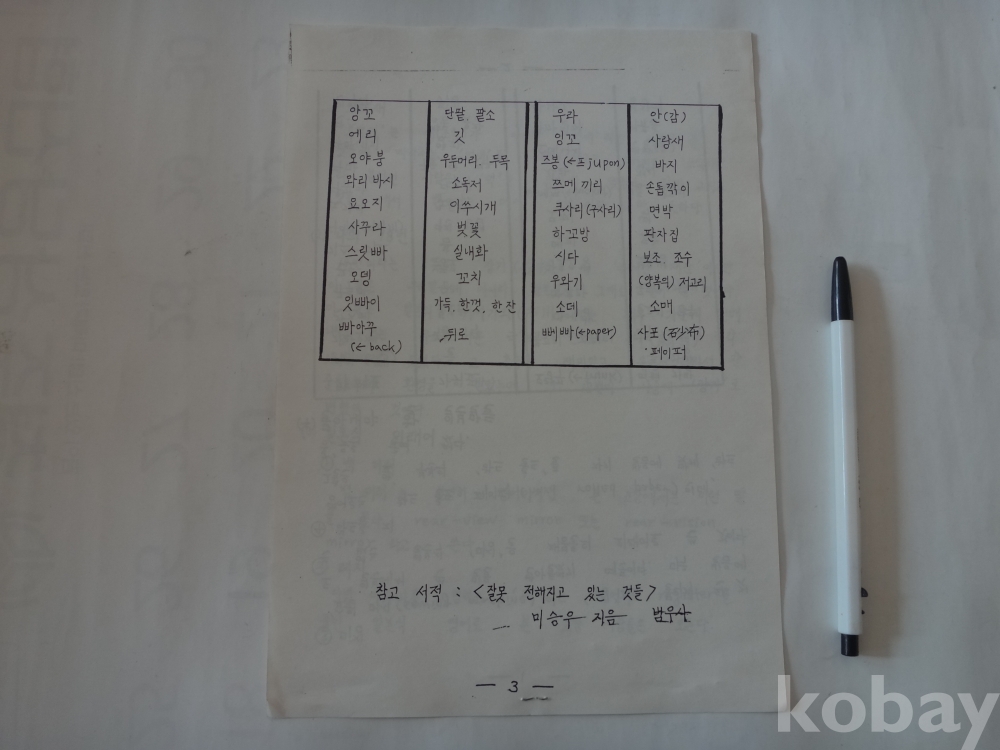 앙꼬 단팥, 팥소 우라 안(감)
에리 깃 잉꼬 사랑새
오야붕 우두머리, 두목 즈봉(←프jupon) 바지
와리바시 소독저 쯔메끼리 손톱깎이
요오지 이쑤시개 쿠사리(구사리) 면박
사꾸라 벚꽃 하꼬방 판자집
스릿빠 실내화 시다 보조, 조수
오뎅 꼬치 우와기 (양복의) 저고리
잇빠이 가득, 한껏, 한 잔 소데 소매
빠아꾸 뒤로 뻬빠(←paper) 사포(石少布)
(← back) 페이퍼
참고 서적 : <잘못 전해지고 있는 것들>
미승우 지음 범우사
— 3 —
kobay